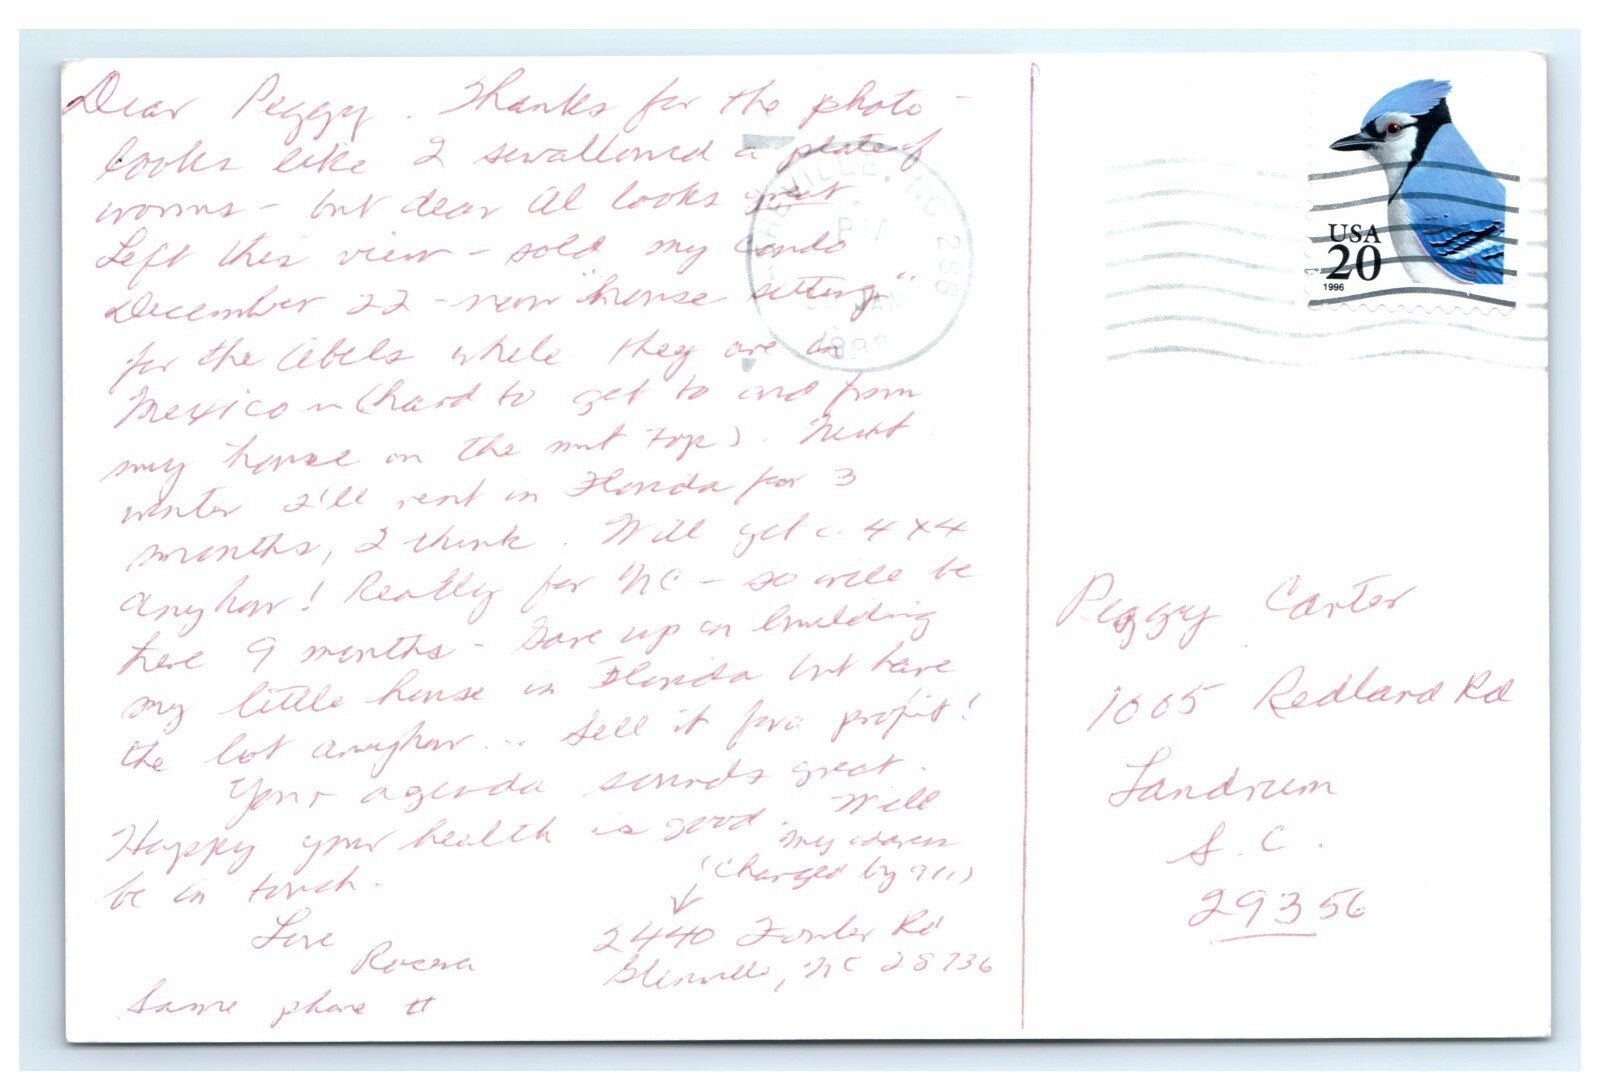 Dear Peggy. Thanks for the photo -
looks like I swallowed a plate of
worms - but dear Al looks great.
Left this view - sold my condo
December 22 - now "house sitting"
for the Abels while they are in
Mexico (hard to get to and from
my house on the mnt top). Next
winter I'll rent in Florida for 3
months, I think. Will get a 4x4
anyhow! Really for NC - so will be
here 9 months - Gave up on building
my little house in Florida but have
the lot anyhow... Sell it for a profit!
Your agenda sounds great.
Happy your health is good. Will
be in touch.
Love
Same phone #
my
(changed by 911)
2440 Fowler Rd
Glenville, NC 28736
VILLE, NC 288
PM
JAN
USA
20
1996
Peggy Carter
1665 Redland Rd
Landrum
S.C.
29356